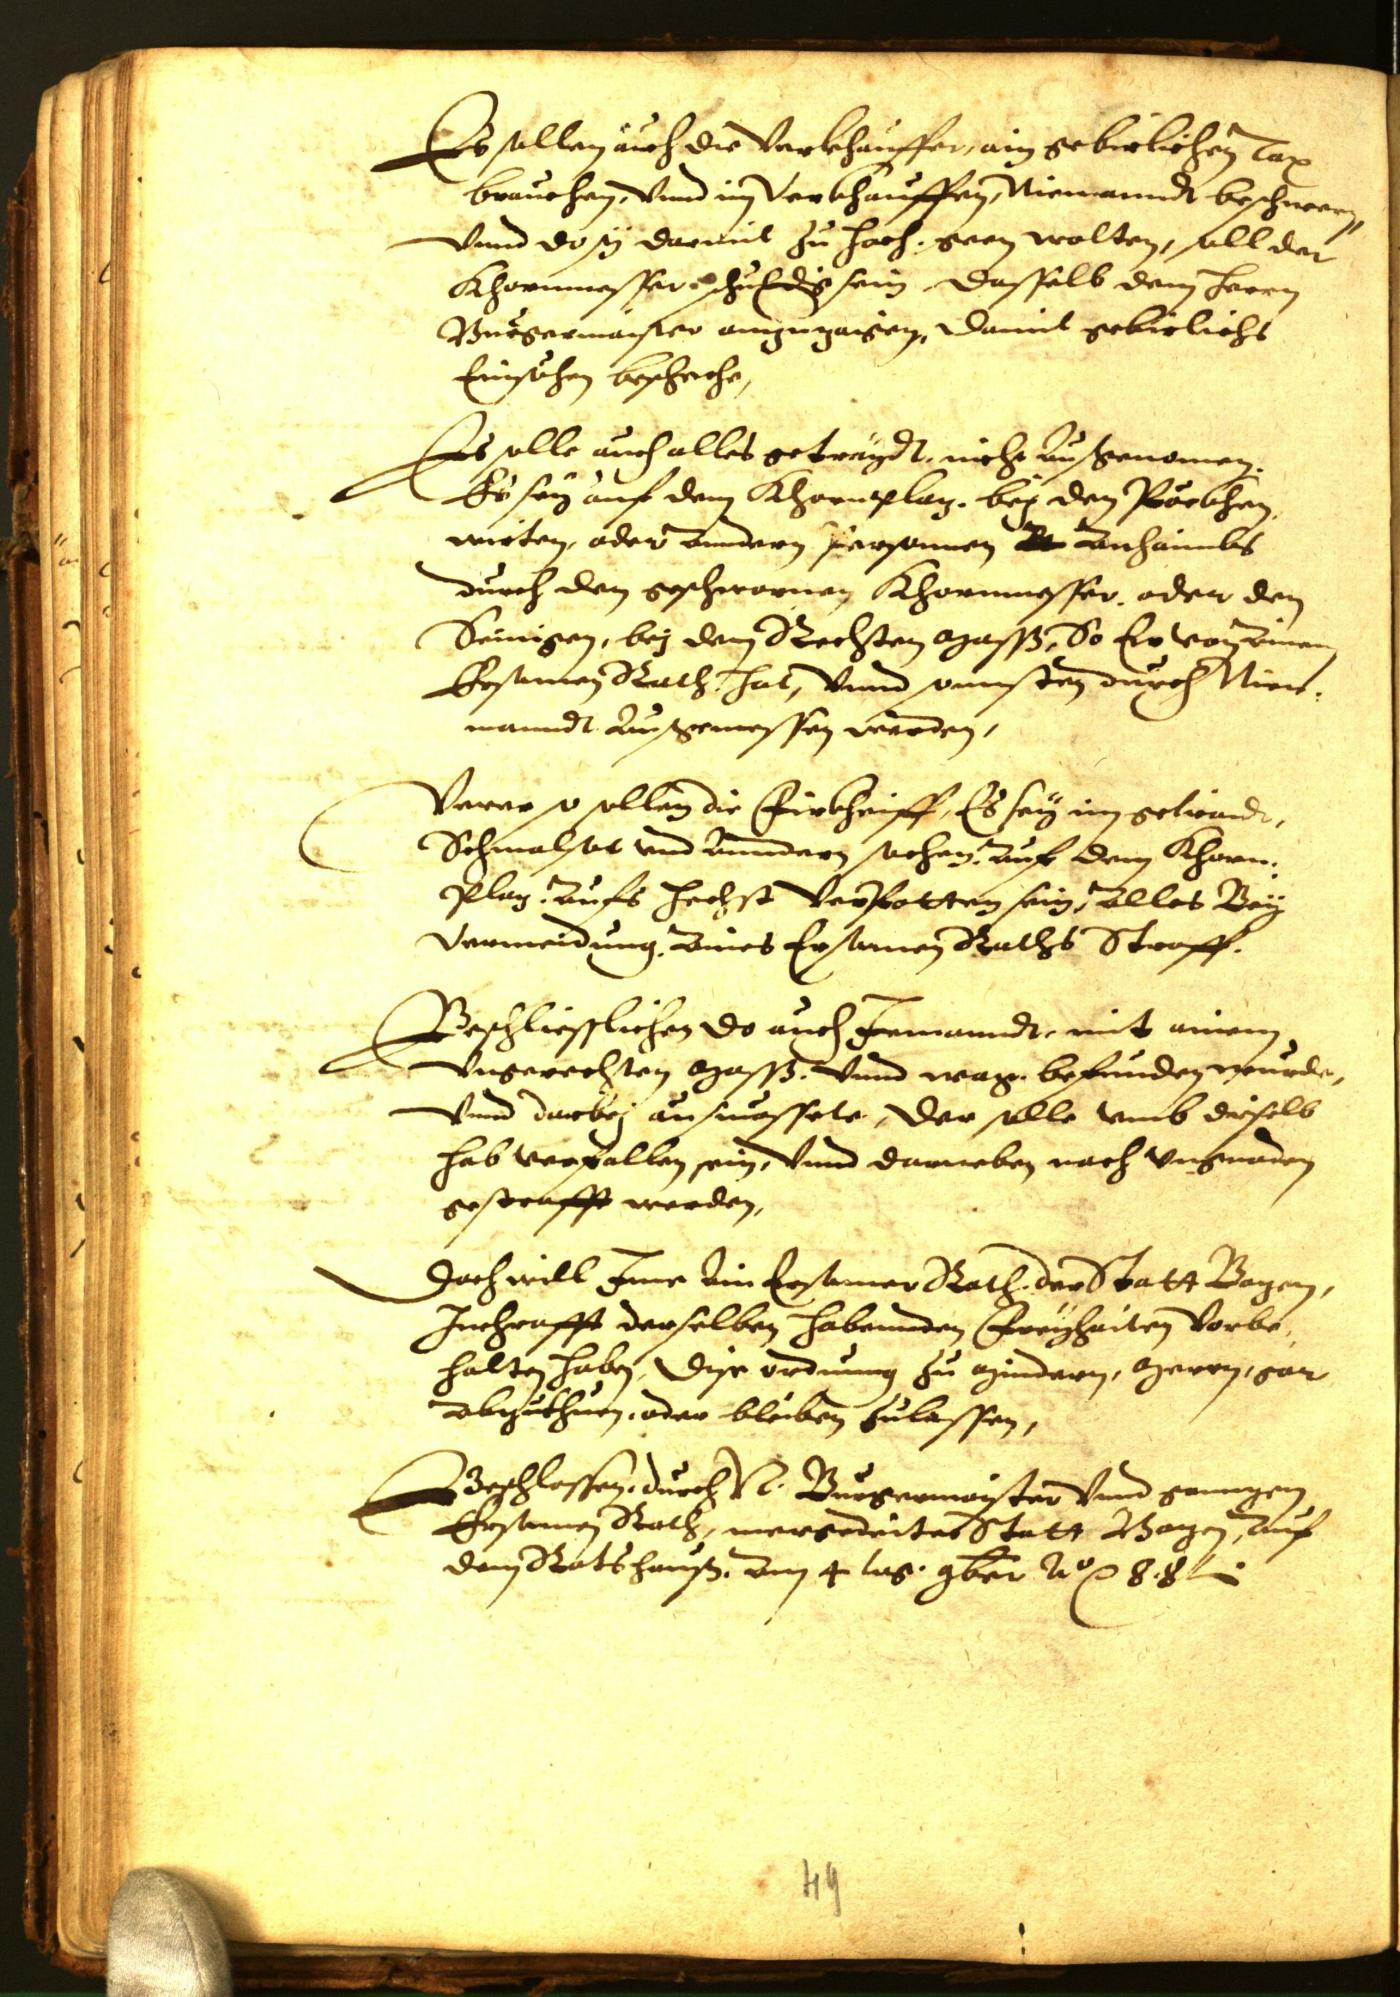 Es sollen auch die Verkheuffer, ain gebirlichen Tax
brauchen, Vnnd im Verkhauffen, Niemanndt beschweern,
Vnnd do sy darmit zu hoch geen wolten, soll der
Khornmesser schuldig sein dasselb dem herrn
Burgermaister anzuzaigen, damit gebirlichs
Einsöhen beschehe,
Es solle auch alles getraydt, nicht außgenomen,
Es sey auf dem Khornplaz, bey den Pöckhen,
wirten, oder anndern Personnen anhaimbs
durch den geschwornen Khornmesser, oder den
Seinigen, bey dem Rechten Maß, So Er von ainem
Ersamen Rath hat, Vnnd sonnsten durch Nie-
manndt außgemessen werden,
Verer so sollen die Fürkheuff, Es sey im getraidt,
Schmalsat vnd anndern sachen, auf dem Khorn-
Plaz, aufs hechst Verpotten sein, alles Bey
Vermeidung aines Ersamen Raths Straff.
Beschließlichen do auch Jemanndt, mit ainem
Vngerechten Maß, Vnnd wag befunden wurde,
Vnnd darbey ausmössete, der solle vmb dieselb
hab verfallen sein, Vnnd darneben nach Vngnaden
gestrafft werden,
Doch will Jme ain Ersamer Rath der Statt Bozen,
Jnchrafft derselben habennden Freyhaiten Vorbe-
halten haben, dise ordnung zu Mindern, Meern, gar
abzuthuen, oder bleiben zulassen,
Beschlossen durch N. Burgermaister Vnnd ganngen
Ersamen Rath, merernenter Statt Bozen, auf
dem Rathshauß, am 4 tag 9ber Aº
49